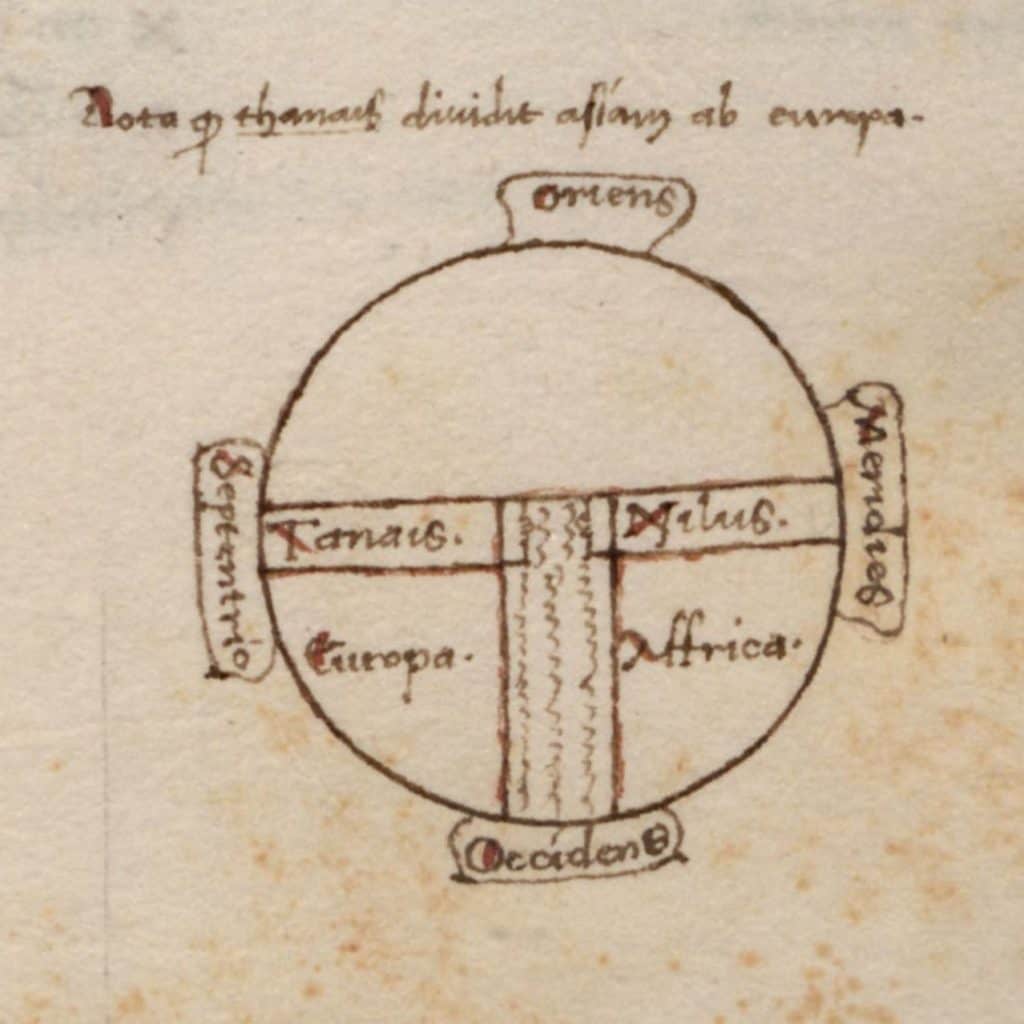 Nota ꝙ thanais diuidit asiam ab europa.
Oriens
Meridies
Septentrio
Tanais.
Nilus.
Europa.
Affrica.
Occidens